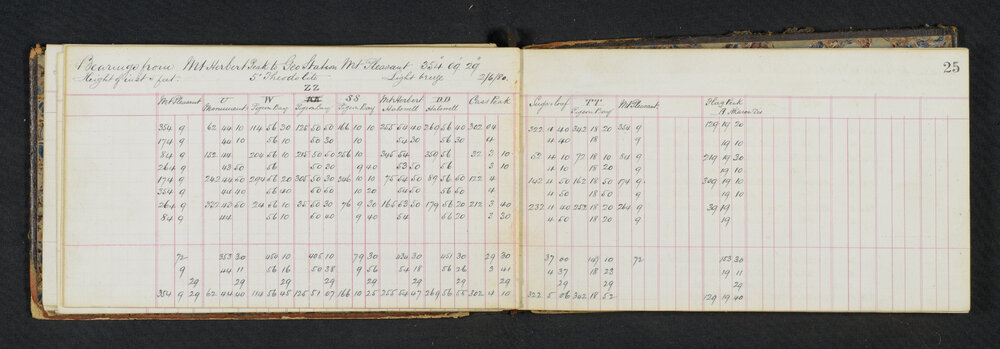 Bearings from Mt Herbert Peak to Geo Station Mt Pleasant 354° 09' 29"
Height of inst 5 feet. 5" Theodolite Light breeze 2/6/80.
25
ZZ
Mt Pleasant U W SS Mt Herbert DD Cass Peak Sugarloaf TT Mt Pleasant Flag Peak
Monument Pigeon Bay Pigeon Bay Pigeon Bay Halswell Halswell Pigeon Bay
354 9 62 44 10 114 56 30 125 50 50 166 10 10 255 54 40 269 56 40 302 04 322 4 40 342 18 20 354 9 129 19 20
174 9 44 10 56 10 50 30 10 54 30 56 30 4 4 40 18 9 19 10
84 9 152 44 204 56 10 215 50 50 256 10 345 54 359 56 32 3 10 52 4 10 72 18 10 84 9 219 19 30
264 9 43 50 56 50 30 9 40 53 50 56 3 10 4 10 18 20 9 19 10
174 9 242 44 50 294 56 20 305 50 30 346 10 10 75 54 50 89 56 50 122 4 142 4 50 162 18 50 174 9 309 19 10
354 9 44 40 56 40 50 50 10 20 54 50 56 50 4 4 50 18 50 9 19 10
264 9 332 43 50 24 56 10 35 50 30 76 9 30 165 53 50 179 56 20 212 3 40 232 4 40 252 18 20 264 9 39 19
84 9 44 56 10 50 40 9 40 54 56 20 3 30 4 50 18 20 9 19
72 353 30 450 10 405 10 79 30 430 30 451 30 29 30 37 00 147 10 72 153 30
9 44 11 56 16 50 38 9 56 54 18 56 26 3 41 4 37 18 23 9 19 11
29 29 29 29 29 29 29 29 29 29 29
354 9 29 62 44 40 114 56 45 125 51 07 166 10 25 255 54 47 269 56 55 302 4 10 322 5 06 342 18 52 129 19 40